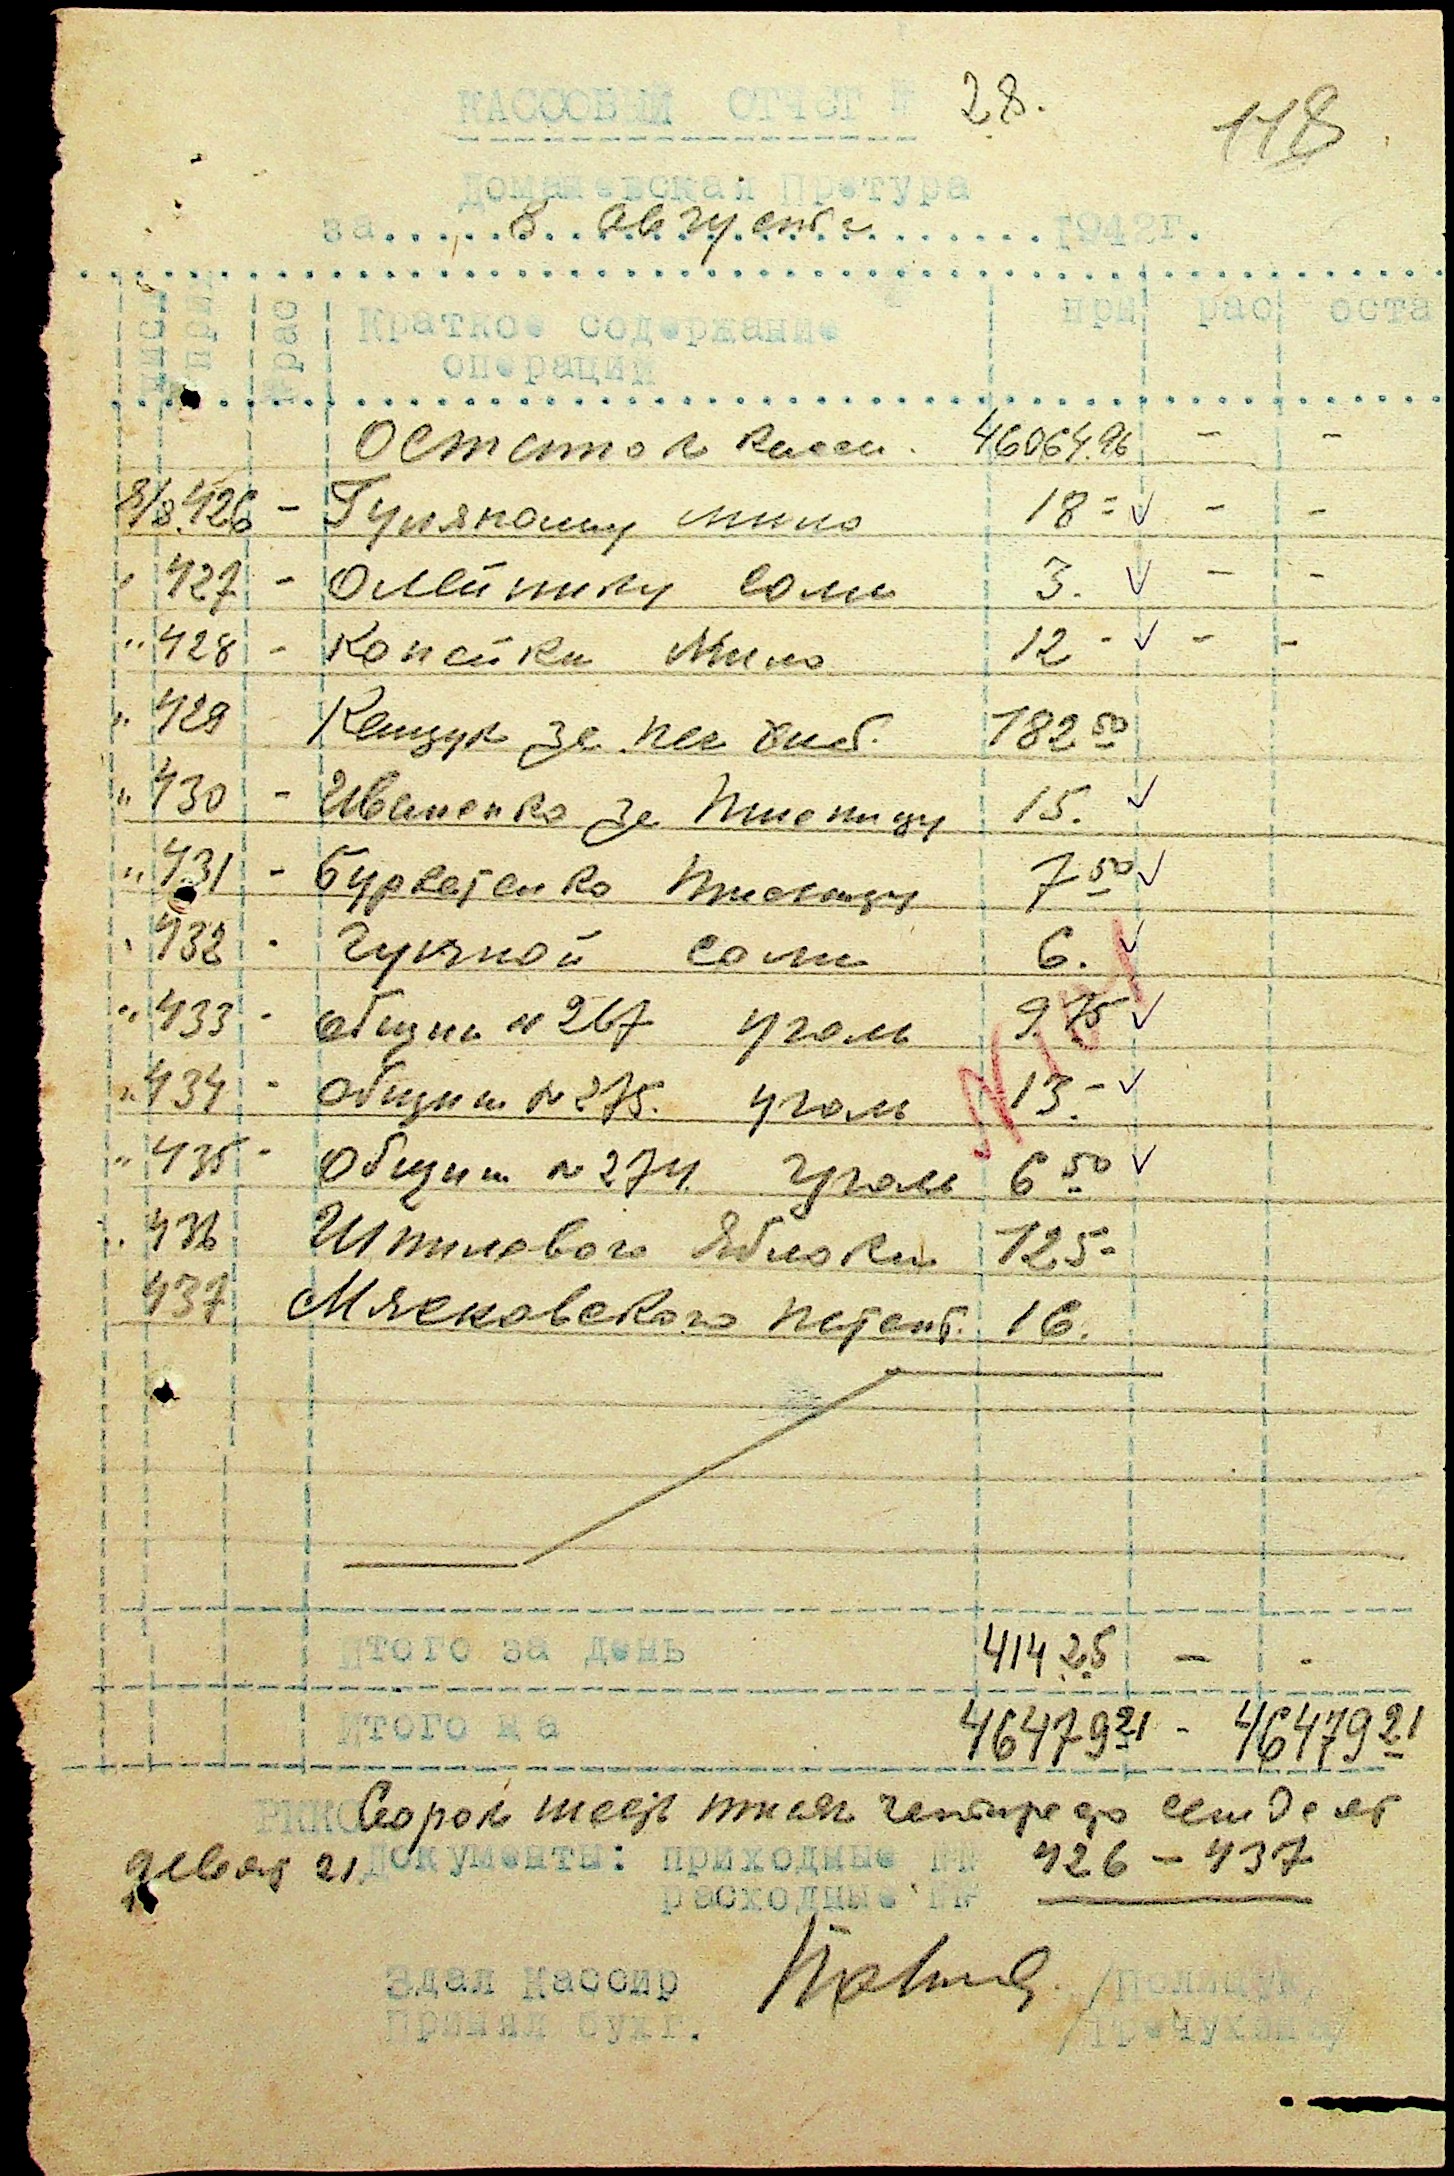 КАССОВЫЙ ОТЧЕТ № 28.
118
Домашевская Претура
за 8 августа 1942г.
чис. № при № рас Краткое содержание при рас оста
операций
Остаток кассы. 46064.96 - -
8/8 426 - Гуляному мыло 18= - -
" 427 - Олейнику соли 3. - -
" 428 - Копейки Мыло 12 - - -
" 429 Кащук за 182 50
" 430 - Иваненко за пшеницу 15.
" 431 - Бурлаченко пшеницу 7 50
" 432 - соли 6.
" 433 - общин № 267 уголь 9 75
" 434 - общин № 275. уголь 13.-
" 435 - общин № 274. уголь 6 50
" 436 яблоки 125-
437 Мясковского патент. 16.
Итого за день 414 25 - -
Итого на 46479 21 - 46479 21
РККС Сорок шесть тысяч четыреста семдесят
девят 21 Документы: приходные №№ 426 - 437
расходные №№
Здал Кассир /Полищук/
Принял бухг.